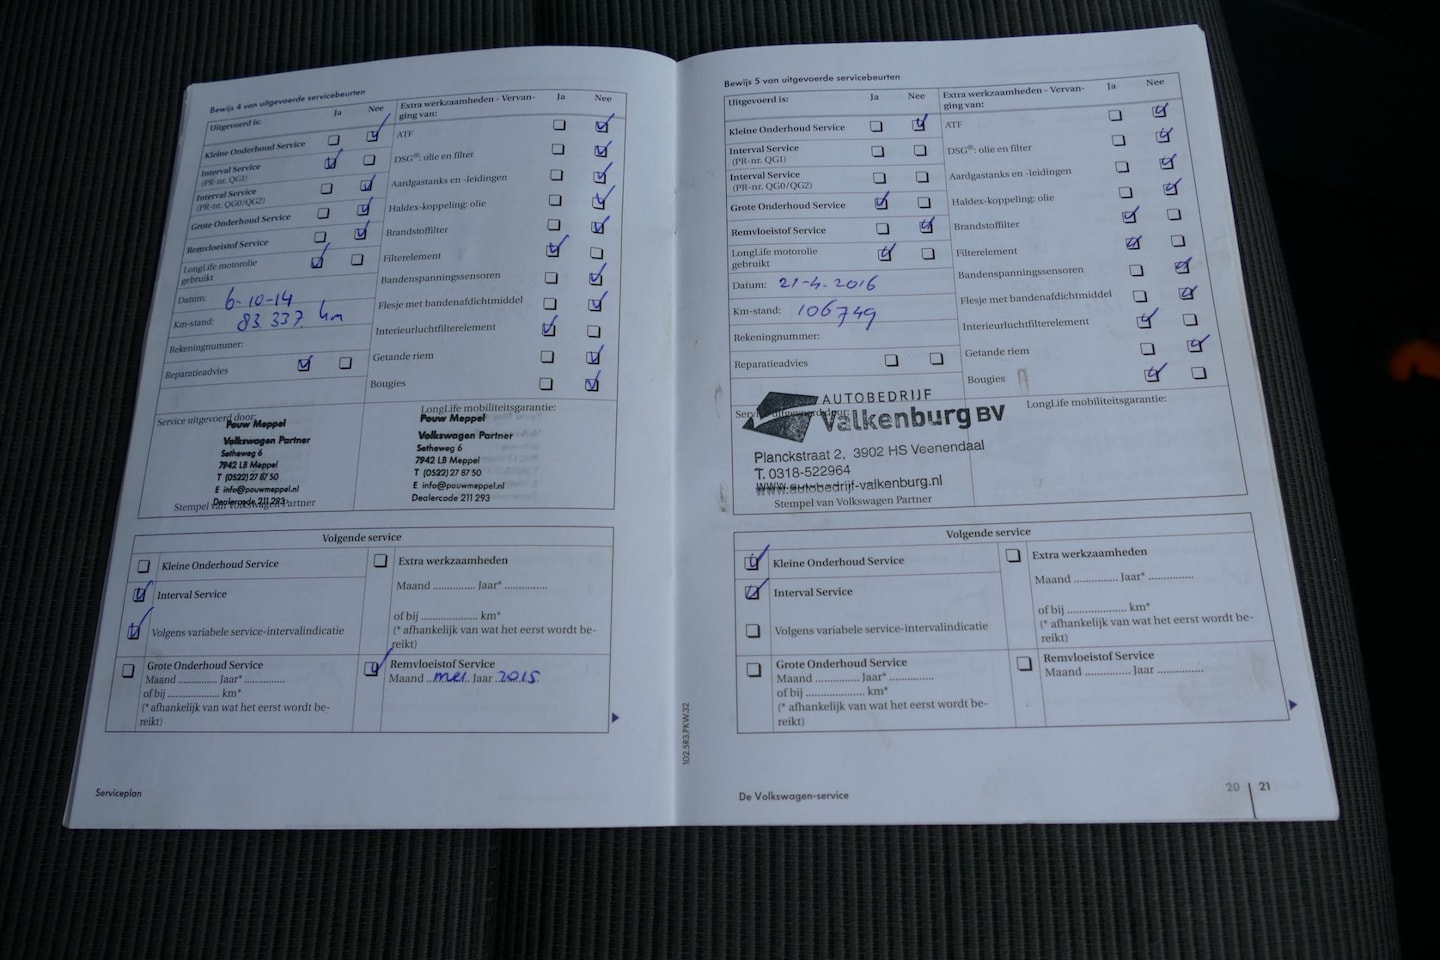 Bewijs 4 van uitgevoerde servicebeurten
Uitgevoerd is:
Ja
Nee
Kleine Onderhoud Service
Interval Service
(PR-nr. QG1)
Interval Service
(PR-nr. QG0/QG2)
Grote Onderhoud Service
Remvloeistof Service
LongLife motorolie
gebruikt
Datum: 6-10-14
Km-stand: 83 337 km
Rekeningnummer:
Reparatieadvies
Extra werkzaamheden - Vervan-
ging van:
Ja
Nee
ATF
DSG®: olie en filter
Aardgastanks en -leidingen
Haldex-koppeling: olie
Brandstoffilter
Filterelement
Bandenspanningssensoren
Flesje met bandenafdichtmiddel
Interieurluchtfilterelement
Getande riem
Bougies
Service uitgevoerd door:
Pouw Meppel
Volkswagen Partner
Setheweg 6
7942 LB Meppel
T (0522) 27 87 50
E info@pouwmeppel.nl
Dealercode 211 293
Stempel van Volkswagen Partner
LongLife mobiliteitsgarantie:
Pouw Meppel
Volkswagen Partner
Setheweg 6
7942 LB Meppel
T (0522) 27 87 50
E info@pouwmeppel.nl
Dealercode 211 293
Volgende service
Kleine Onderhoud Service
Interval Service
Volgens variabele service-intervalindicatie
Grote Onderhoud Service
Maand ............. Jaar* .............
of bij .................. km*
(* afhankelijk van wat het eerst wordt be-
reikt)
Extra werkzaamheden
Maand .............. Jaar* ..............
of bij .................... km*
(* afhankelijk van wat het eerst wordt be-
reikt)
Remvloeistof Service
Maand ..mei.. Jaar ..2015.
Serviceplan
102.5R3.PKW.32
Bewijs 5 van uitgevoerde servicebeurten
Uitgevoerd is:
Ja
Nee
Kleine Onderhoud Service
Interval Service
(PR-nr. QG1)
Interval Service
(PR-nr. QG0/QG2)
Grote Onderhoud Service
Remvloeistof Service
LongLife motorolie
gebruikt
Datum: 21-4-2016
Km-stand: 106749
Rekeningnummer:
Reparatieadvies
Extra werkzaamheden - Vervan-
ging van:
Ja
Nee
ATF
DSG®: olie en filter
Aardgastanks en -leidingen
Haldex-koppeling: olie
Brandstoffilter
Filterelement
Bandenspanningssensoren
Flesje met bandenafdichtmiddel
Interieurluchtfilterelement
Getande riem
Bougies
Service uitgevoerd door:
AUTOBEDRIJF
Valkenburg BV
Planckstraat 2, 3902 HS Veenendaal
T. 0318-522964
www.autobedrijf-valkenburg.nl
Stempel van Volkswagen Partner
LongLife mobiliteitsgarantie:
Volgende service
Kleine Onderhoud Service
Interval Service
Volgens variabele service-intervalindicatie
Grote Onderhoud Service
Maand .............. Jaar* ..............
of bij .................... km*
(* afhankelijk van wat het eerst wordt be-
reikt)
Extra werkzaamheden
Maand .............. Jaar* ..............
of bij .................... km*
(* afhankelijk van wat het eerst wordt be-
reikt)
Remvloeistof Service
Maand .............. Jaar ..............
De Volkswagen-service
20
21